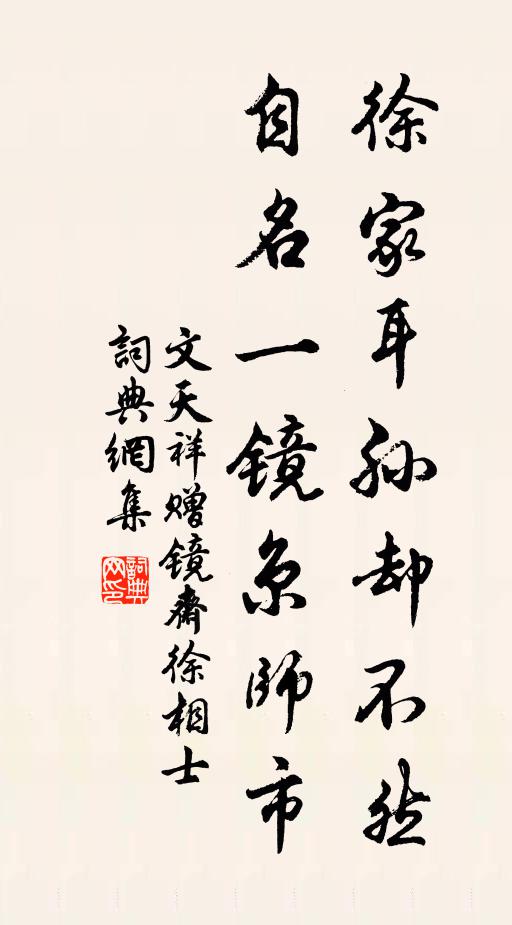 徐家耳孙却不然
自名一镜京師市
文天祥赠镜齋徐相士
詞典網集
詞典网印